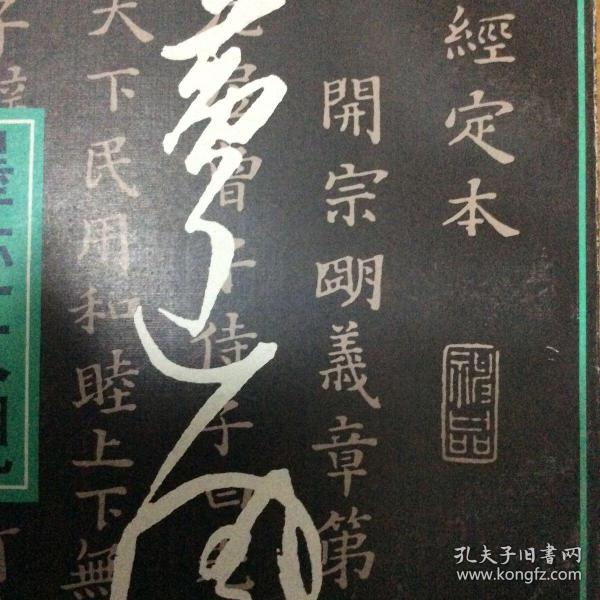 經定本
神品
開宗朙義章第
曾子侍子曰
黃道周
天下民用和睦上下無
孔夫子旧書网
www.kongfz.com